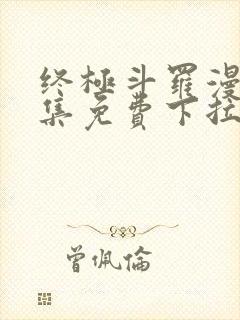 终極斗羅漫
集免費下拉
曾佩倫